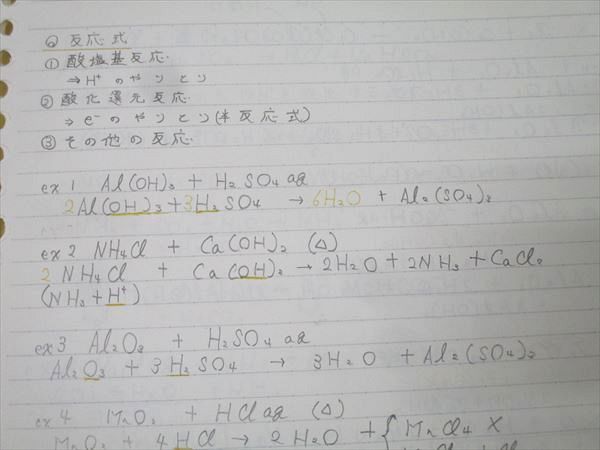 ◎ 反応式
① 酸塩基反応.
⇒ H⁺ のやりとり
② 酸化還元反応.
⇒ e⁻のやりとり(半反応式)
③ その他の反応.
ex 1 Al(OH)₃ + H₂SO₄ aq
2Al(OH)₃ + 3H₂SO₄ → 6H₂O + Al₂(SO₄)₃
ex 2 NH₄Cl + Ca(OH)₂ (△)
2 NH₄Cl + Ca(OH)₂ → 2H₂O + 2NH₃ + CaCl₂
(NH₃ + H⁺)
ex 3 Al₂O₃ + H₂SO₄ aq
Al₂O₃ + 3H₂SO₄ → 3H₂O + Al₂(SO₄)₃
ex 4 MnO₂ + HCl aq (△)
MnO₂ + 4HCl → 2H₂O + { MnCl₄ ×